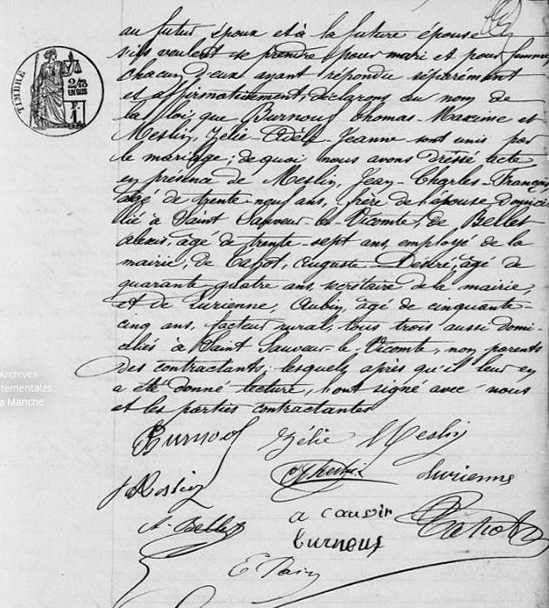 au futur époux et à la future épouse
s'ils veulent se prendre pour mari et pour femme
chacun d'eux ayant répondu séparément
et affirmativement, déclarons au nom de
la loi, que Burnouf Thomas-Maxime et
Meslin, Zélie Adèle Jeanne sont unis par
le mariage; de quoi nous avons dressé acte
en présence de Meslin, Jean-Charles-François
âgé de trente-neuf ans, frère de l'épouse, domici
lié à Saint Sauveur-le-Vicomte, de Bellet
Alexis, âgé de trente-sept ans, employé de la
mairie, de Tapot, Auguste-Désiré, âgé de
quarante quatre ans, secrétaire de la mairie,
et de Lurienne, Aubin, âgé de cinquante-
cinq ans, facteur rural, tous trois aussi domi-
ciliés à Saint Sauveur-le-Vicomte, non parents
des contractants; lesquels après qu'il leur en
a été donné lecture, ont signé avec nous
et les parties contractantes
TIMBRE
Archives
rtementales
a Manche
Burnouf Zélie Meslin
J Meslin Lurienne
A. Bellet
burnouf